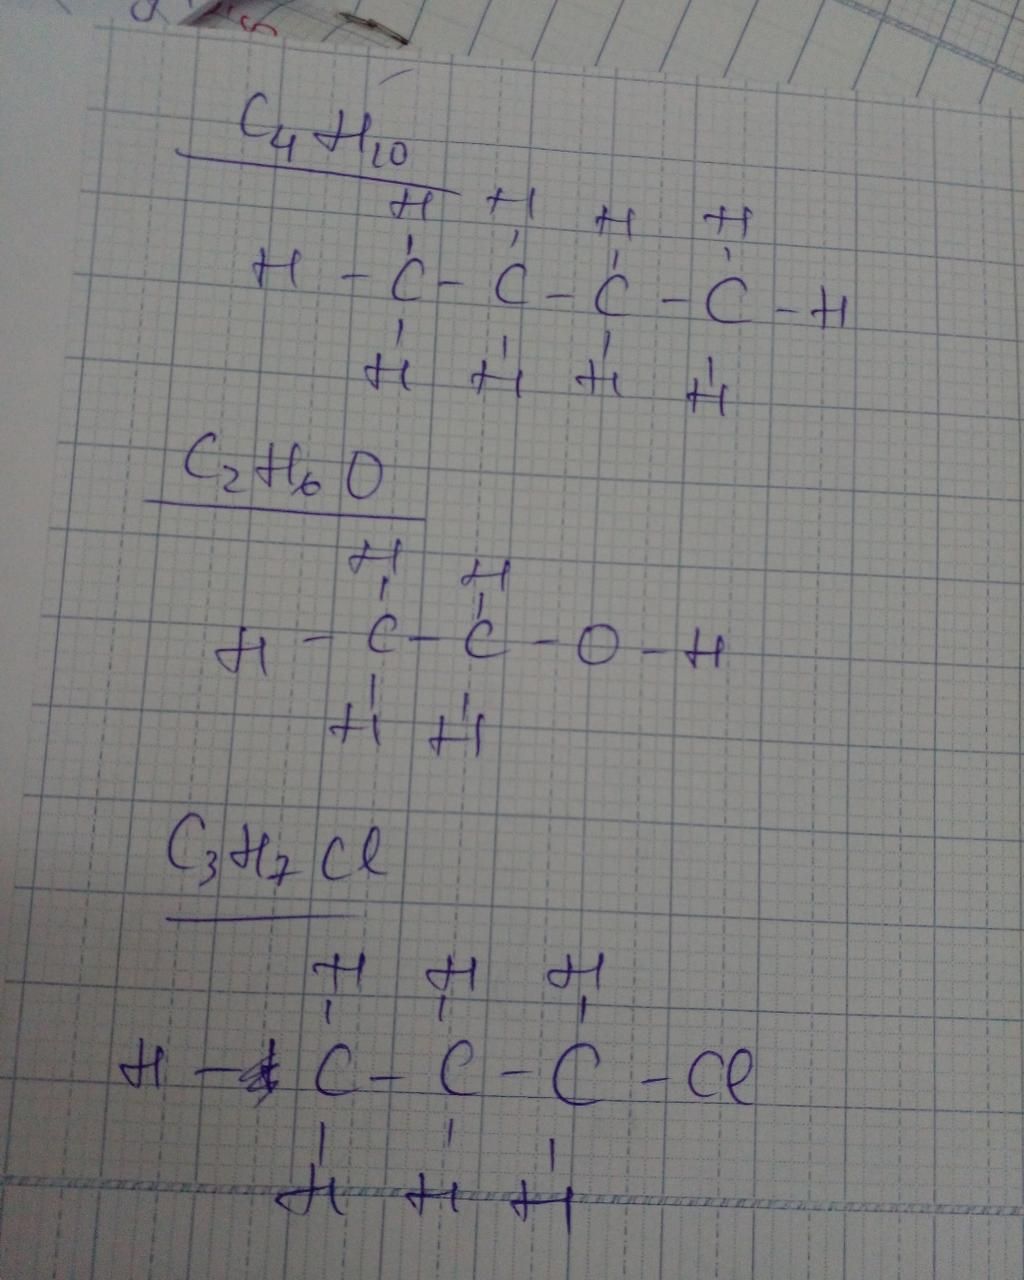 C4H10
H H H H
H - C - C - C - C - H
H H H H
C2H6O
H H
H - C - C - O - H
H H
C3H7Cl
H H H
H - C - C - C - Cl
H H H